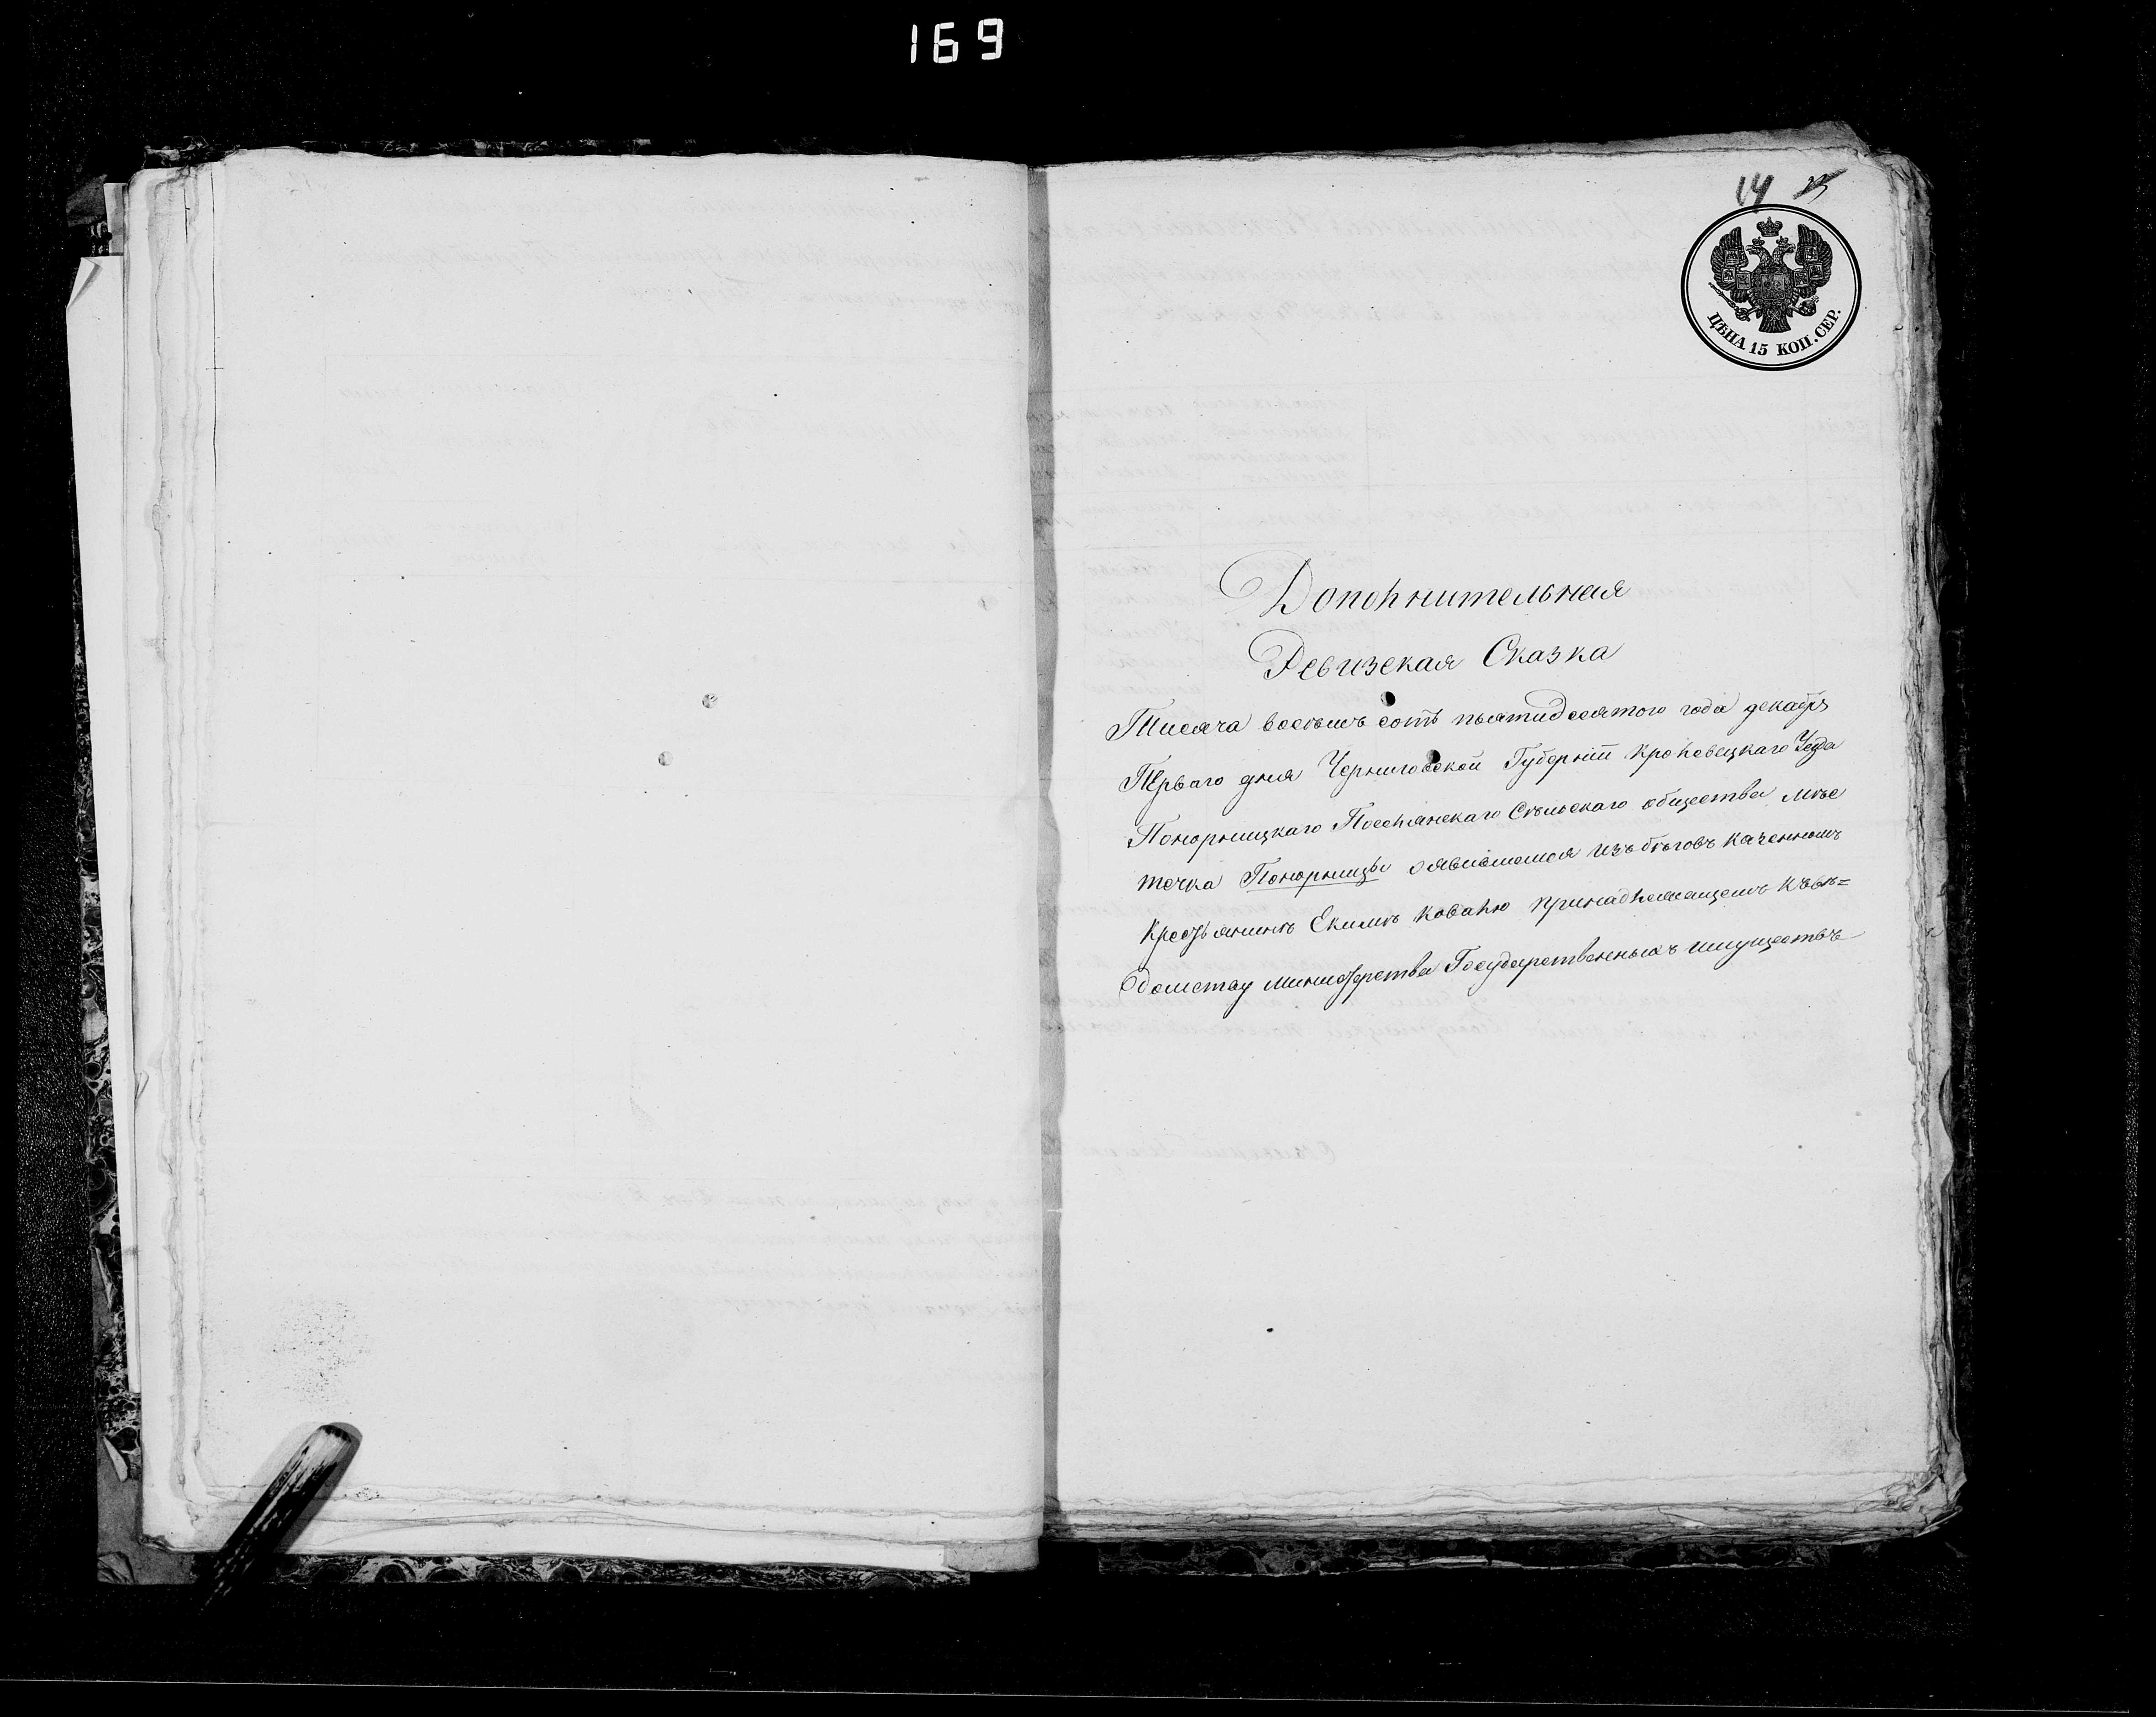 169
14 13
ЦѢНА 15 КОП. СЕР.
Дополнительная
Ревизская Сказка
Тисяча восемъ сотъ пьятидесятого года декабря
Перваго дня Черниговской Губерніи Кролевецкаго Уезда
Понорницкаго Посолянскаго Сельскаго общества мѣс
течка Понорницы оявившемся изъ бѣговъ казенномъ
Крестьянинѣ Екимѣ Ковалю принадлежащемъ къ вѣ=
домству министерства Государственныхъ имуществъ